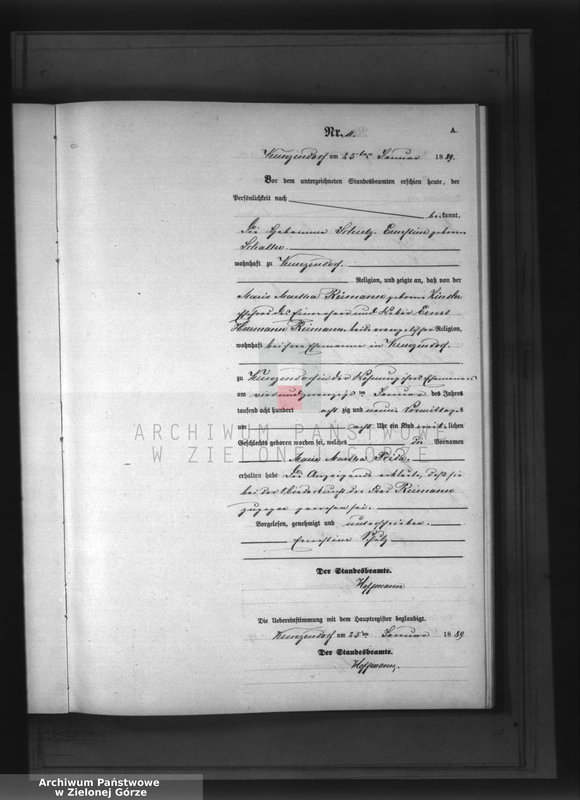 Nr. 11.
A.
Kunzendorf am 25ten Januar 1889.
Vor dem unterzeichneten Standesbeamten erschien heute, der
Persönlichkeit nach
bekannt,
die Hebamme Schulz, Ernestine geborne
wohnhaft zu Kunzendorf
Religion, und zeigte an, daß von der
Maria Martha Reimann geborne Kindler
Ehefrau des und Ernst
Hermann Reimann, beide evangelischer Religion,
wohnhaft bei ihrem Ehemanne in Kunzendorf
zu Kunzendorf in der Wohnung ihres Ehemannes
am vierundzwanzigsten Januar des Jahres
tausend acht hundert achtzig und neun Vormittags
um acht Uhr ein Kind weiblichen
Geschlechts geboren worden sei, welches die Vornamen
Maria Martha Frida
erhalten habe. Die Anzeigende erklärte, daß sie
bei der Niederkunft der Frau Reimann
zugegen gewesen sei.
Vorgelesen, genehmigt und unterschrieben.
Ernestine Schulz
Der Standesbeamte.
Hoffmann
Die Uebereinstimmung mit dem Hauptregister beglaubigt.
Kunzendorf am 25ten Januar 1889.
Der Standesbeamte.
Hoffmann.
ARCHIWUM PAŃSTWOWE
W ZIELONEJ GÓRZE
Archiwum Państwowe
w Zielonej Górze